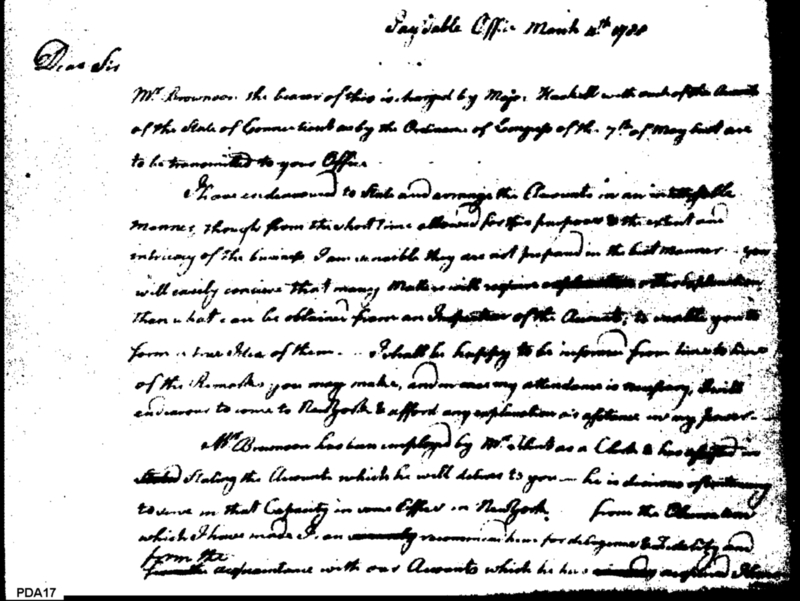 Pay Table Office March 11th 1788
Dear Sir
Mr. Brownson the bearer of this is charged by Majr. Haskell with such of the Accounts
of the State of Connecticut as by the Ordinance of Congress of the 7th of May last are
to be transmitted to your Office
I have endeavoured to State and arrange the Accounts in an intelligible
manner, though from the short time allowed for this purpose & the extent and
intricacy of the business, I am sensible they are not prepared in the best Manner you
will easily conceive that many Matters will require other Explanation
than what can be obtained from an Inspection of the Accounts, to enable you to
form a true Idea of them I shall be happy to be informed from time to time
of the Remarks you may make, and in case my attendance is necessary, I will
endeavour to come to New York & afford any explanation or assistance in my power
Mr. Brownson has been employed by Mr. as a Clerk & has assisted in
Stating the Accounts which he will deliver to you he is desirous of continuing
to serve in that Capacity in some Office in New York from the Observation
which I have made I can recommend him for diligence & Fidelity and
from the
acquaintance with our Accounts which he has acquired I
PDA17